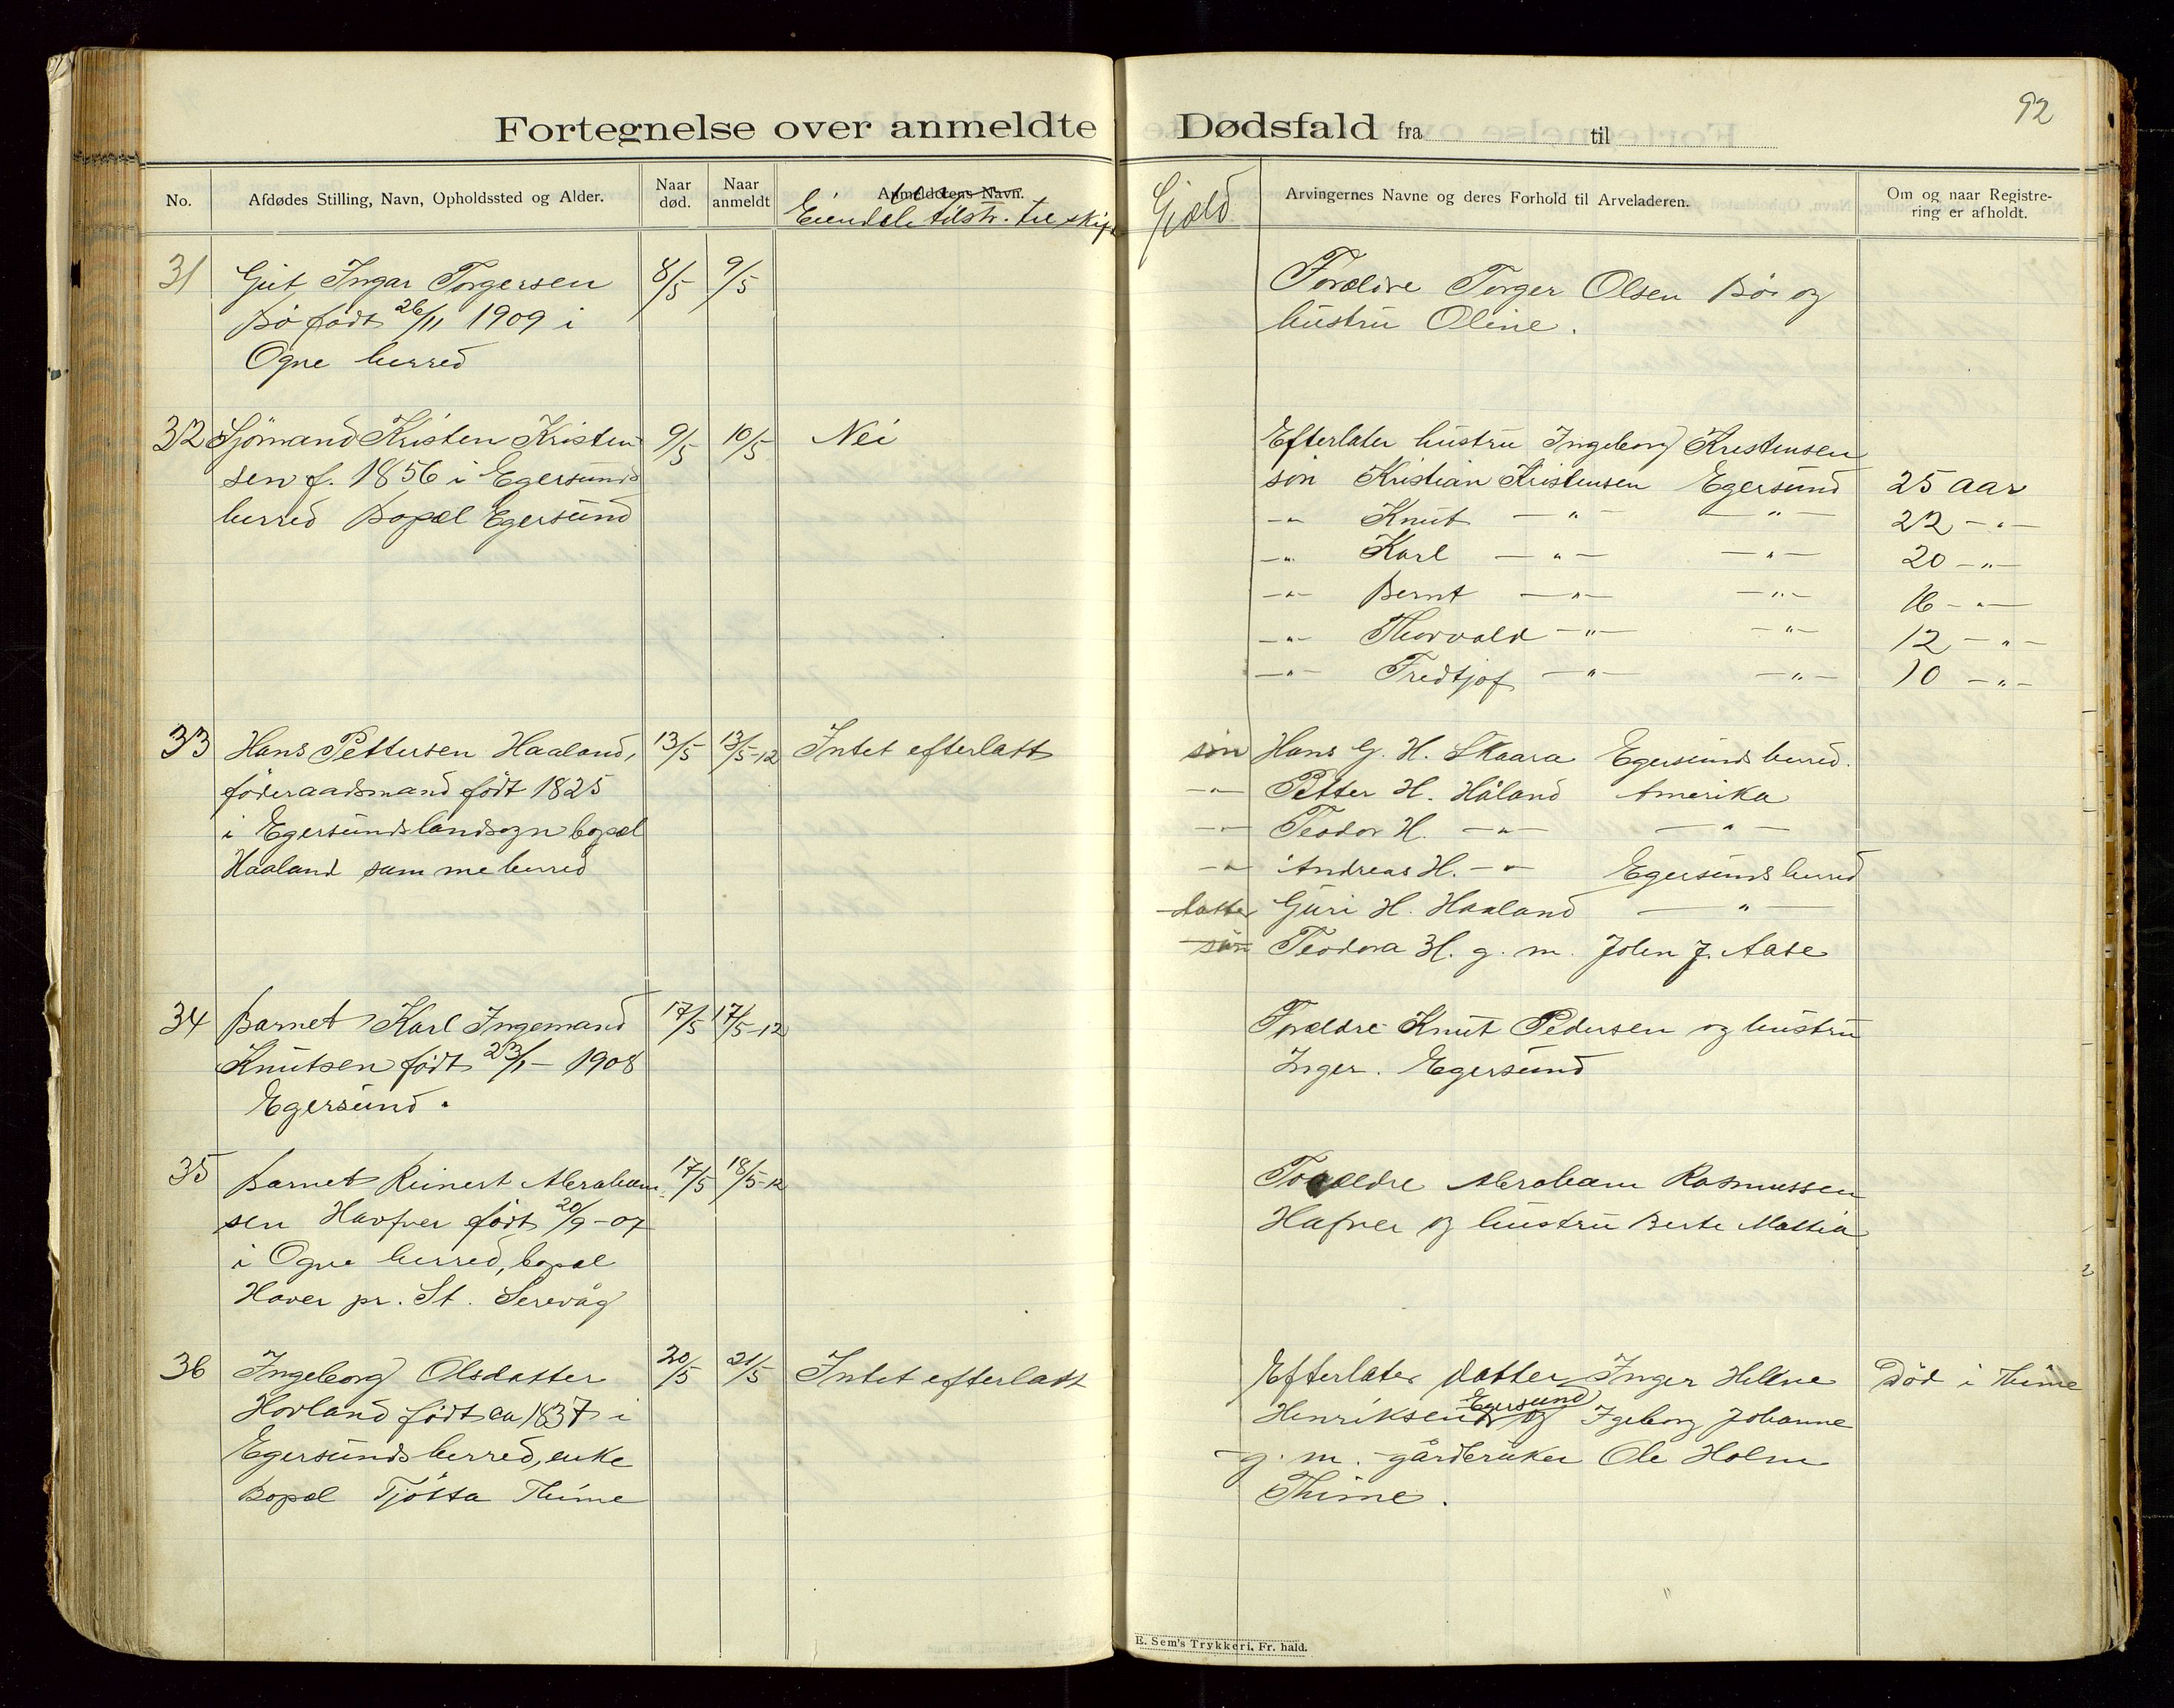 92
Fortegnelse over anmeldte Dødsfald fra til
No. Afdødes Stilling, Navn, Opholdssted og Alder. Naar død. Naar anmeldt Anmelderens Navn. Arvingernes Navne og deres Forhold til Arveladeren. Om og naar Registrering er afholdt.
tilstr. til skifte Gjæld
31 Gut Ingar Torgersen 8/5 9/5 Forældre Torger Olsen Bö og
Bö født 26/11 1909 i hustru Oline.
Ogne herred
32 Sjömand Kristen Kristen 9/5 10/5 Nei Efterlater hustru Ingeborg Kristensen
sen f. 1856 i Egersunds sön Kristian Kristensen Egersund 25 aar
herred Bopæl Egersund -"- Knut -"- -"- 22 -"-
-"- Karl -"- -"- 20 -"-
-"- Bernt -"- -"- 16 -"-
-"- Thorvald -"- -"- 12 -"-
-"- Fredtjof -"- -"- 10 -"-
33 Hans Pettersen Haaland, 13/5 13/5-12 Intet efterlatt sön Hans G. H. Skaara Egersunds herred.
föderaadsmand født 1825 -"- Petter H. Håland Amerika
i Egersunds landsogn bopæl -"- Teodor H. -"- -"-
Haaland samme herred -"- Andreas H. -"- Egersunds herred
datter Guri H. Haaland -"-
sön Teodora H. g. m. John J. Aase
34 Barnet Karl Ingemand 17/5 17/5-12 Forældre Knut Pedersen og hustru
Knutsen født 23/1- 1908 Inger. Egersund
Egersund.
35 Barnet Reinert Abraham 17/5 18/5-12 Forældre Abraham Rasmussen
sen Havfver født 20/9-07 Hafver og hustru Berte Mathia
i Ogne herred, bopæl
Haver pr. St. Sirevåg
36 Ingeborg Olsdatter 20/5 21/5 Intet efterlatt Efterlater datter Inger Helene Död i Thime
Egersund
Hovland født ca 1837 i Henriksen og Igeborg Johanne
Egersunds herred, enke g. m. gårdbruker Ole Holm
Bopæl Tjötta Thime Thime.
E. Sem's Trykkeri, Fr. hald.